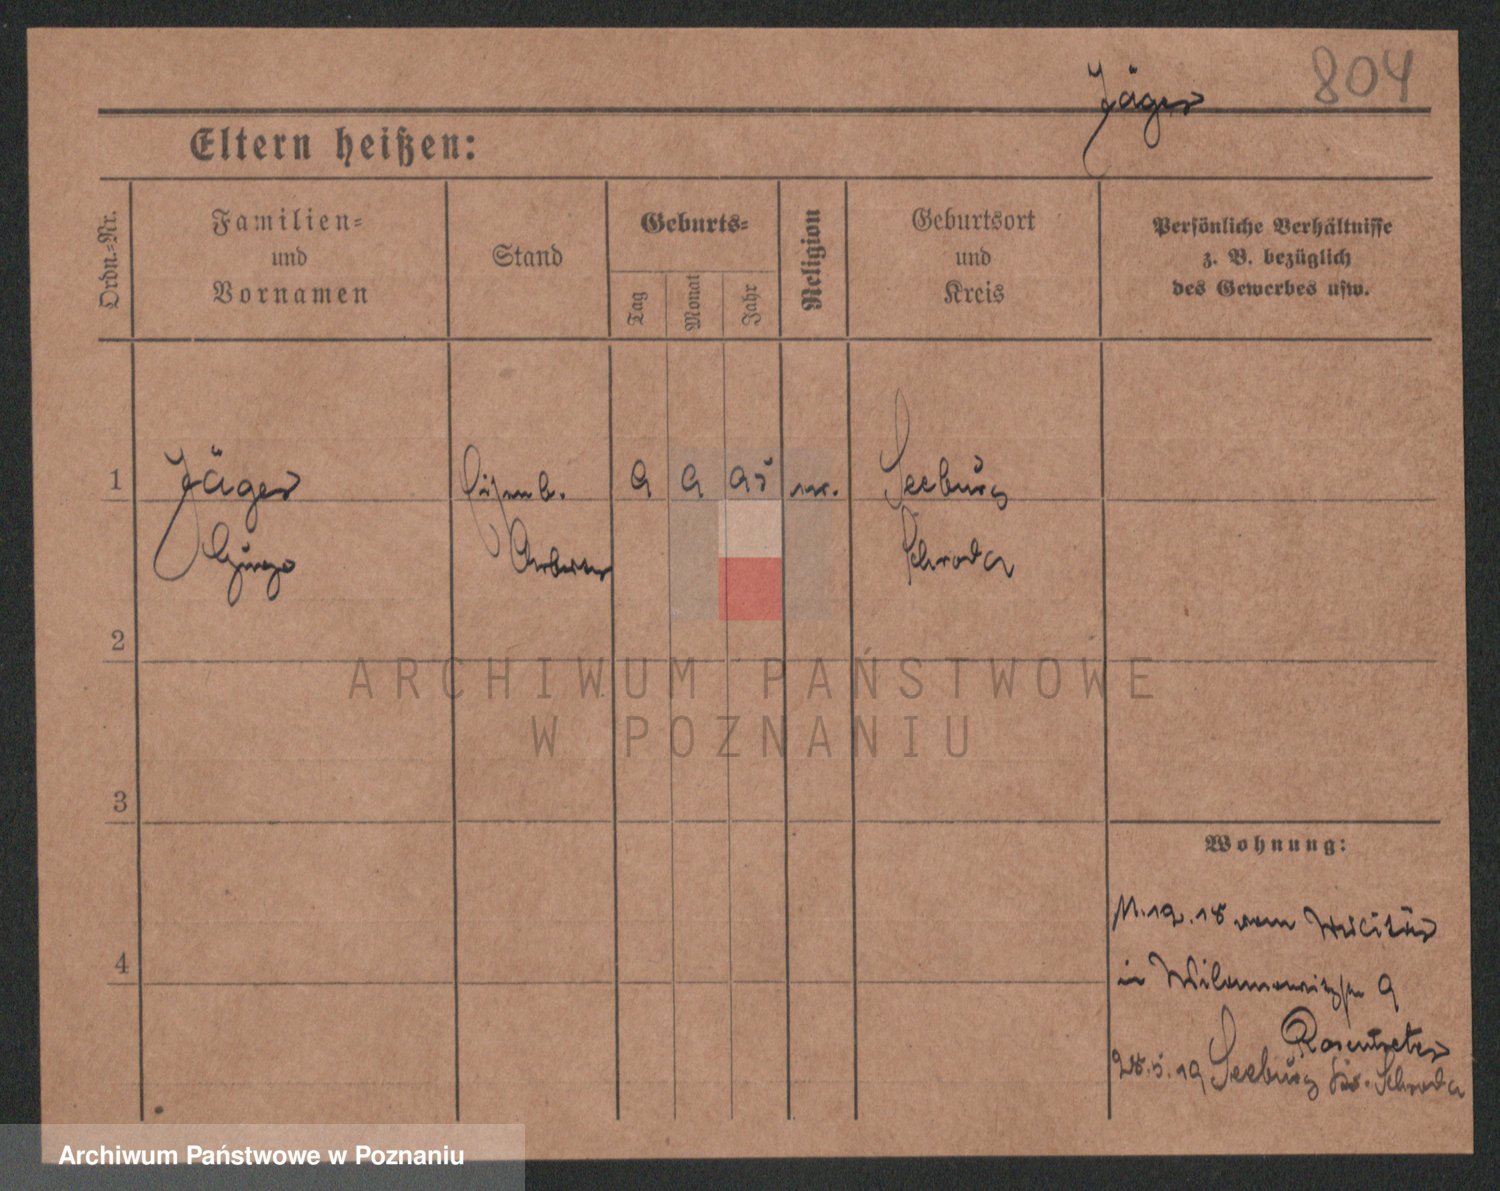 804
Jäger
Eltern heißen:
Ordn.-Nr.
Familien-
und
Vornamen
Stand
Geburts-
Tag
Monat
Jahr
Religion
Geburtsort
und
Kreis
Persönliche Verhältnisse
z. B. bezüglich
des Gewerbes usw.
1
Jäger
Hugo
Eisenb.
Arbeiter
9
9
95
Seeburg
Schroda
2
ARCHIWUM PAŃSTWOWE
W POZNANIU
3
Wohnung:
11.12.18 vom Militär
in Wilamowitzstr 9
Rosentreter
28.5.19 Seeburg Kr. Schroda
4
Archiwum Państwowe w Poznaniu